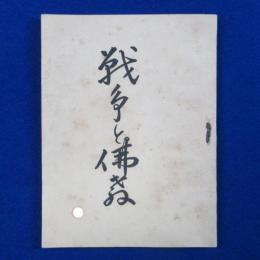 戦争と佛教